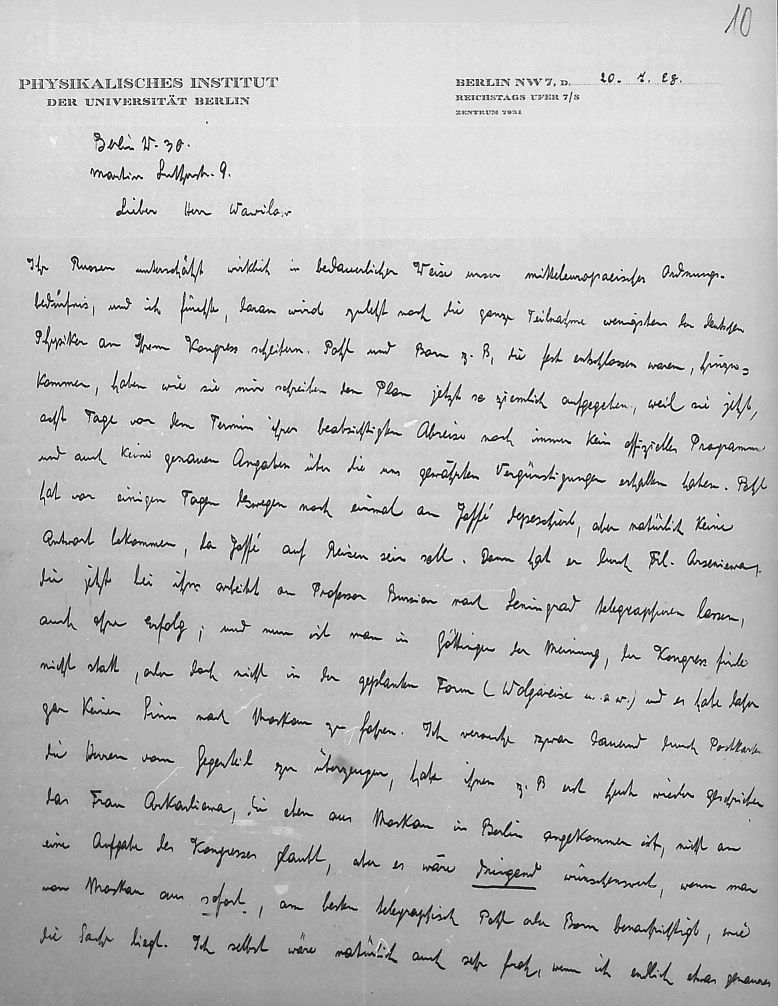 10
PHYSIKALISCHES INSTITUT
DER UNIVERSITÄT BERLIN
BERLIN NW7, D. 20. 7. 28.
REICHSTAGS UFER 7/8
ZENTRUM 7021
Berlin W. 30.
Martin Lutherstr. 9.
Lieber Herr Wawilov
Ihr Russen unterschätzt wirklich in bedauerlicher Weise unser mitteleuropaeisches Ordnungs-
bedürfnis, und ich fürchte, daran wird zuletzt noch die ganze Teilnahme wenigstens der deutschen
Physiker an Ihrem Kongress scheitern. Pohl und Born z. B, die fest entschlossen waren, hinzu=
kommen, haben wie sie mir schreiben den Plan jetzt so ziemlich aufgegeben, weil sie jetzt,
acht Tage vor dem Termin ihrer beabsichtigten Abreise noch immer kein offizielles Programm
und auch keine genauen Angaben über die uns gewährten Vergünstigungen erhalten haben. Pohl
hat vor einigen Tagen deswegen noch einmal an Joffé depeschiert, aber natürlich keine
Antwort bekommen, da Joffé auf Reisen sein soll. Dann hat er durch Frl. Arseniewa,
die jetzt bei ihm arbeitet an Professor Bursian nach Leningrad telegraphieren lassen,
auch ohne Erfolg; und nun ist man in Göttingen der Meinung, der Kongress finde
nicht statt, oder doch nicht in der geplanten Form (Wolgareise u. s. w.) und es habe daher
gar keinen Sinn nach Moskau zu fahren. Ich versuche zwar dauernd durch Postkarten
die Herren vom Gegenteil zu überzeugen, habe ihnen z. B erst heute wieder geschrieben
das Frau Arkadiewa, die eben aus Moskau in Berlin angekommen ist, nicht an
eine Aufgabe des Kongresses glaubt, aber es wäre dringend wünschenswert, wenn man
von Moskau aus sofort, am besten telegraphisch Pohl oder Born benachrichtigt, wie
die Sache liegt. Ich selbst wäre natürlich auch sehr froh, wenn ich endlich etwas genaueres